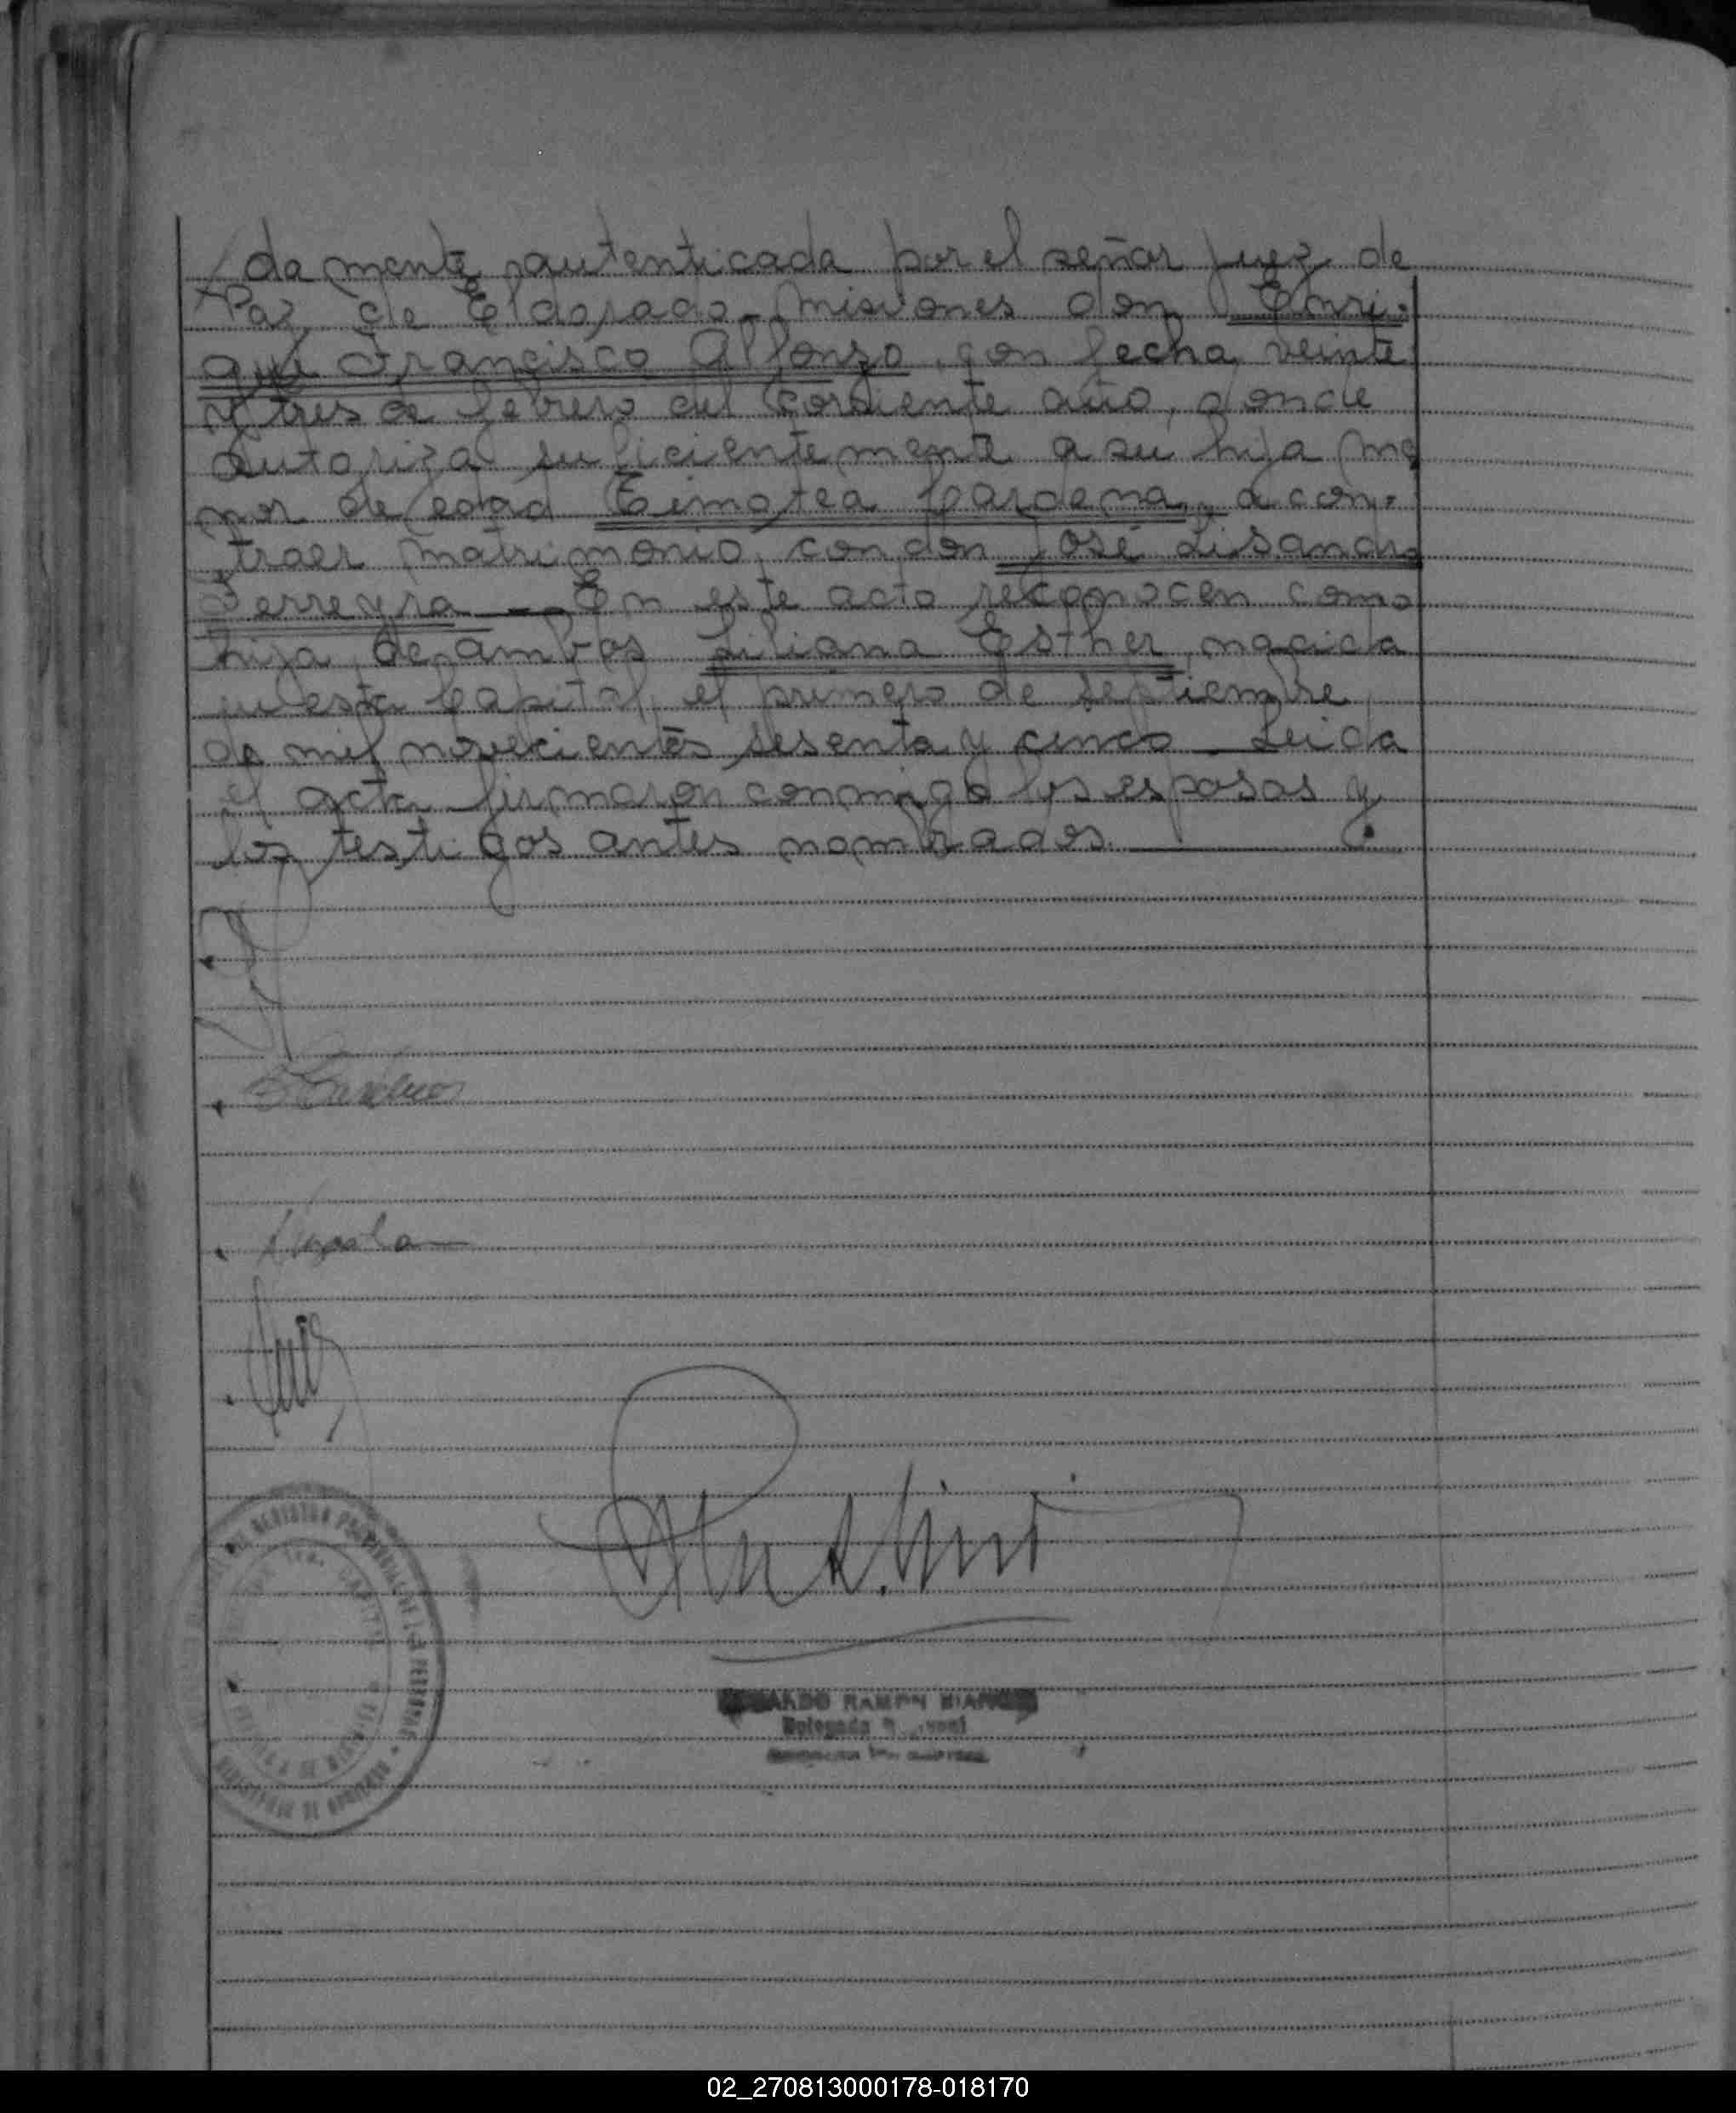 damente autenticada por el señor juez de
Paz de Eldorado - Misiones don Enri-
que Francisco Alfonzo, con fecha veinte
y tres de febrero del corriente año, donde
autoriza suficientemente a su hija me
nor de edad Timotea Cardena, a con-
traer matrimonio, con don José Lisandro
Ferreyra — En este acto reconocen como
hija de ambos Liliana Esther, nacida
en esta Capital, el primero de septiembre
de mil novecientos sesenta y cinco - Leida
el acta firmaron conmigo los esposos y
los testigos antes nombrados.
RAMON
02_270813000178-018170